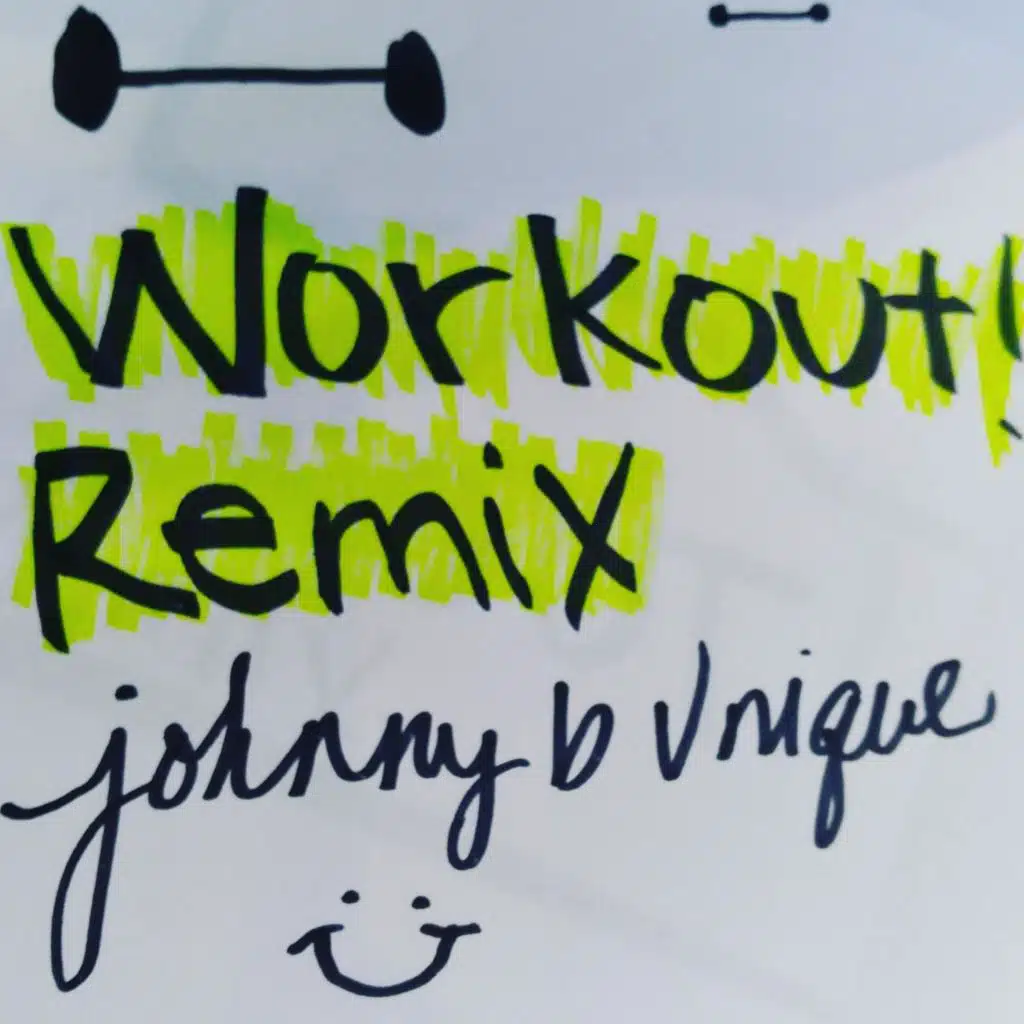 Workout!
Remix
johnny b Unique